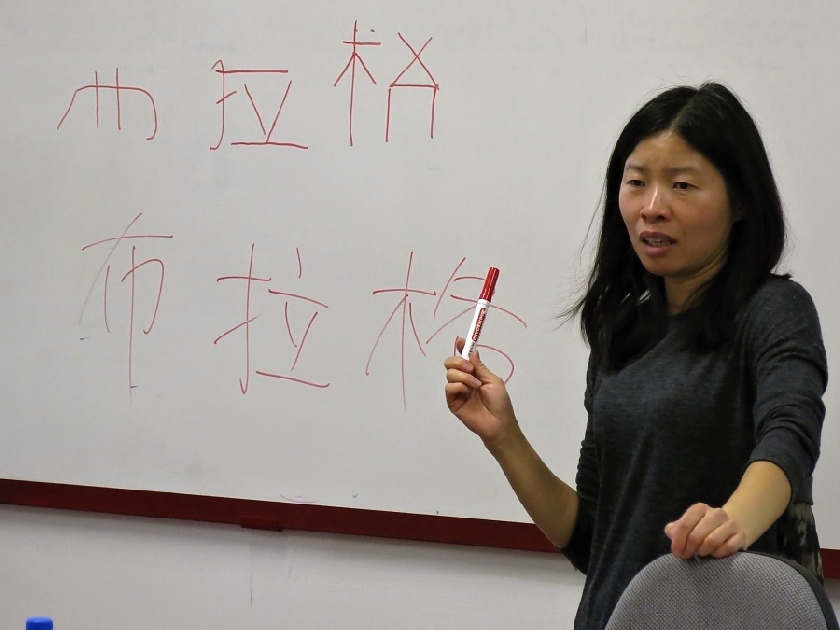 布拉格
布拉格